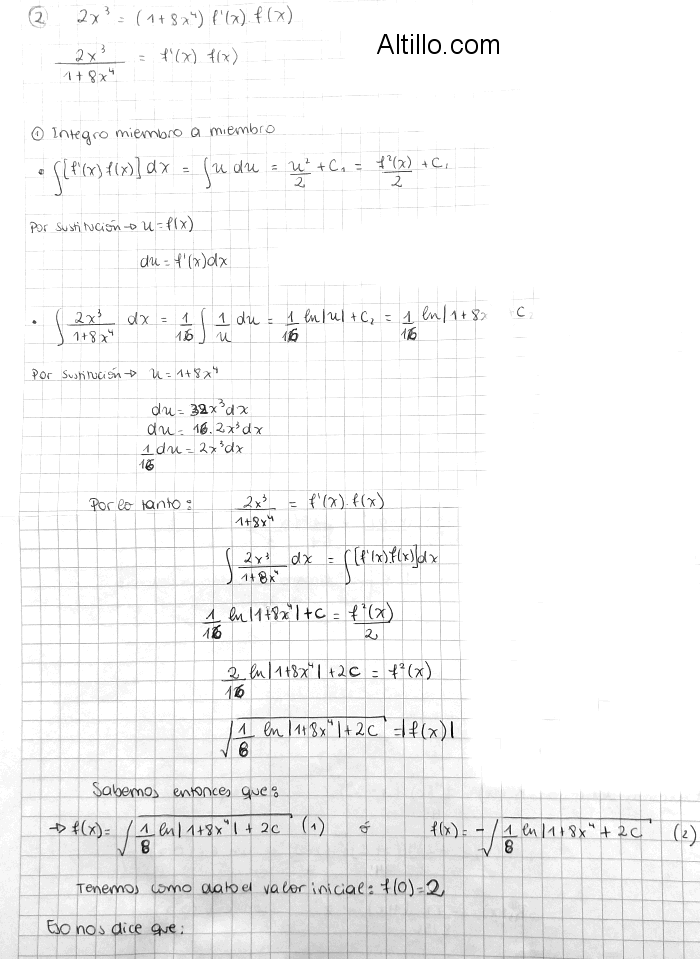 ② 2x³ = (1+8x⁴) f'(x) f(x)
Altillo.com
2x³/(1+8x⁴) = f'(x) f(x)
① Integro miembro a miembro
• ∫[f'(x) f(x)] dx = ∫u du = u²/2 + C₁ = f²(x)/2 + C₁
Por sustitución → u = f(x)
du = f'(x)dx
• ∫ 2x³/(1+8x⁴) dx = 1/16 ∫ 1/u du = 1/16 ln|u| + C₂ = 1/16 ln|1+8x C
Por sustitución → u = 1+8x⁴
du = 32x³dx
du = 16.2x³dx
1/16 du = 2x³dx
Por lo tanto: 2x³/(1+8x⁴) = f'(x).f(x)
∫ 2x³/(1+8x⁴) dx = ∫[f'(x).f(x)]dx
1/16 ln|1+8x⁴| + C = f²(x)/2
2/16 ln|1+8x⁴| + 2C = f²(x)
√(1/8 ln|1+8x⁴| + 2C) = |f(x)|
Sabemos entonces que:
→ f(x) = √(1/8 ln|1+8x⁴| + 2C) (1) ó f(x) = -√(1/8 ln|1+8x⁴ + 2C) (2)
Tenemos como dato el valor inicial: f(0)=2
Eso nos dice que: